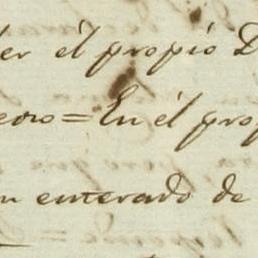 er él propio D
ero = En él prop
n enterado de